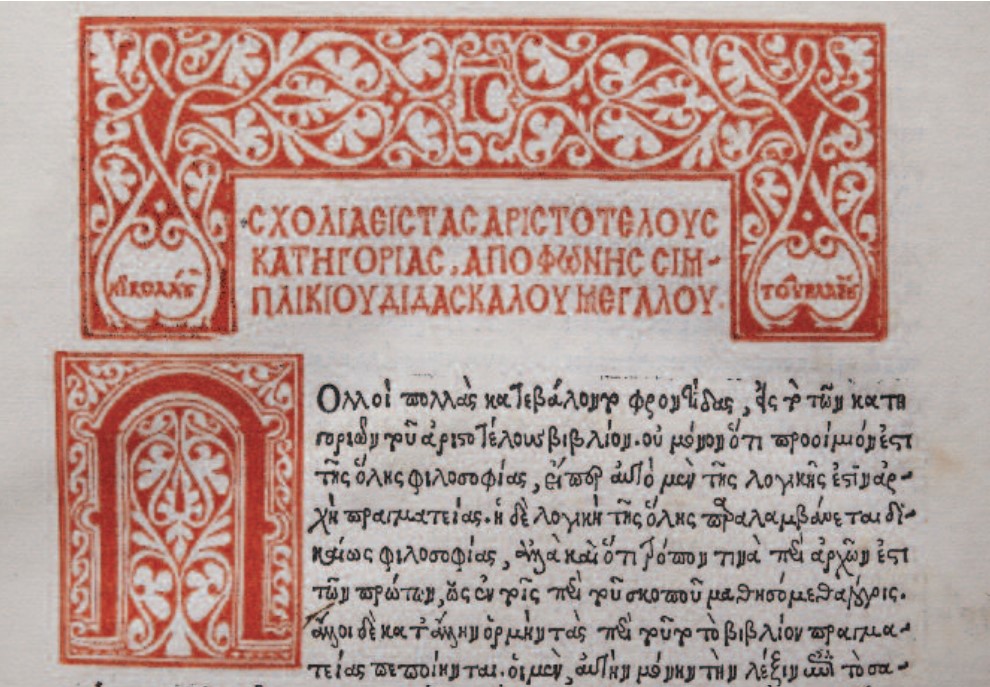 IC
CΧΟΛΙΑ ΕΙC ΤΑC ΑΡΙCΤΟΤΕΛΟΥC
ΚΑΤΗΓΟΡΙΑC, ΑΠΟ ΦΩΝΗC CΙΜ-
ΠΛΙΚΙΟΥ ΔΙΔΑCΚΑΛΟΥ ΜΕΓΑΛΟΥ.
νικολάου
τοῦ βλαστοῦ
ΠΟλλοὶ πολλὰς κατεβάλοντο φροντίδας, εἰς τὸ τῶν κατη
γοριῶν τοῦ ἀριστοτέλους βιβλίον. οὐ μόνον ὅτι προοίμιόν ἐστι
τῆς ὅλης φιλοσοφίας, εἴπερ αὐτὸ μὲν τῆς λογικῆς ἐστὶν ἀρ-
χὴ πραγματείας. ἡ δὲ λογικὴ τῆς ὅλης παραλαμβάνεται δι-
καίως φιλοσοφίας, ἀλλὰ καὶ ὅτι τρόπον τινὰ περὶ ἀρχῶν ἐστι
τῶν πρώτων, ὡς ἐν τοῖς περὶ τοῦ σκοποῦ μαθησόμεθα λόγοις.
ἄλλοι δὲ κατ' ἄλλην ὁρμὴν τὰς περὶ τοῦτο τὸ βιβλίον πραγμα-
τείας πεποίηνται. οἱ μὲν, αὐτὴν μόνην τὴν λέξιν ἐπὶ τὸ σα-